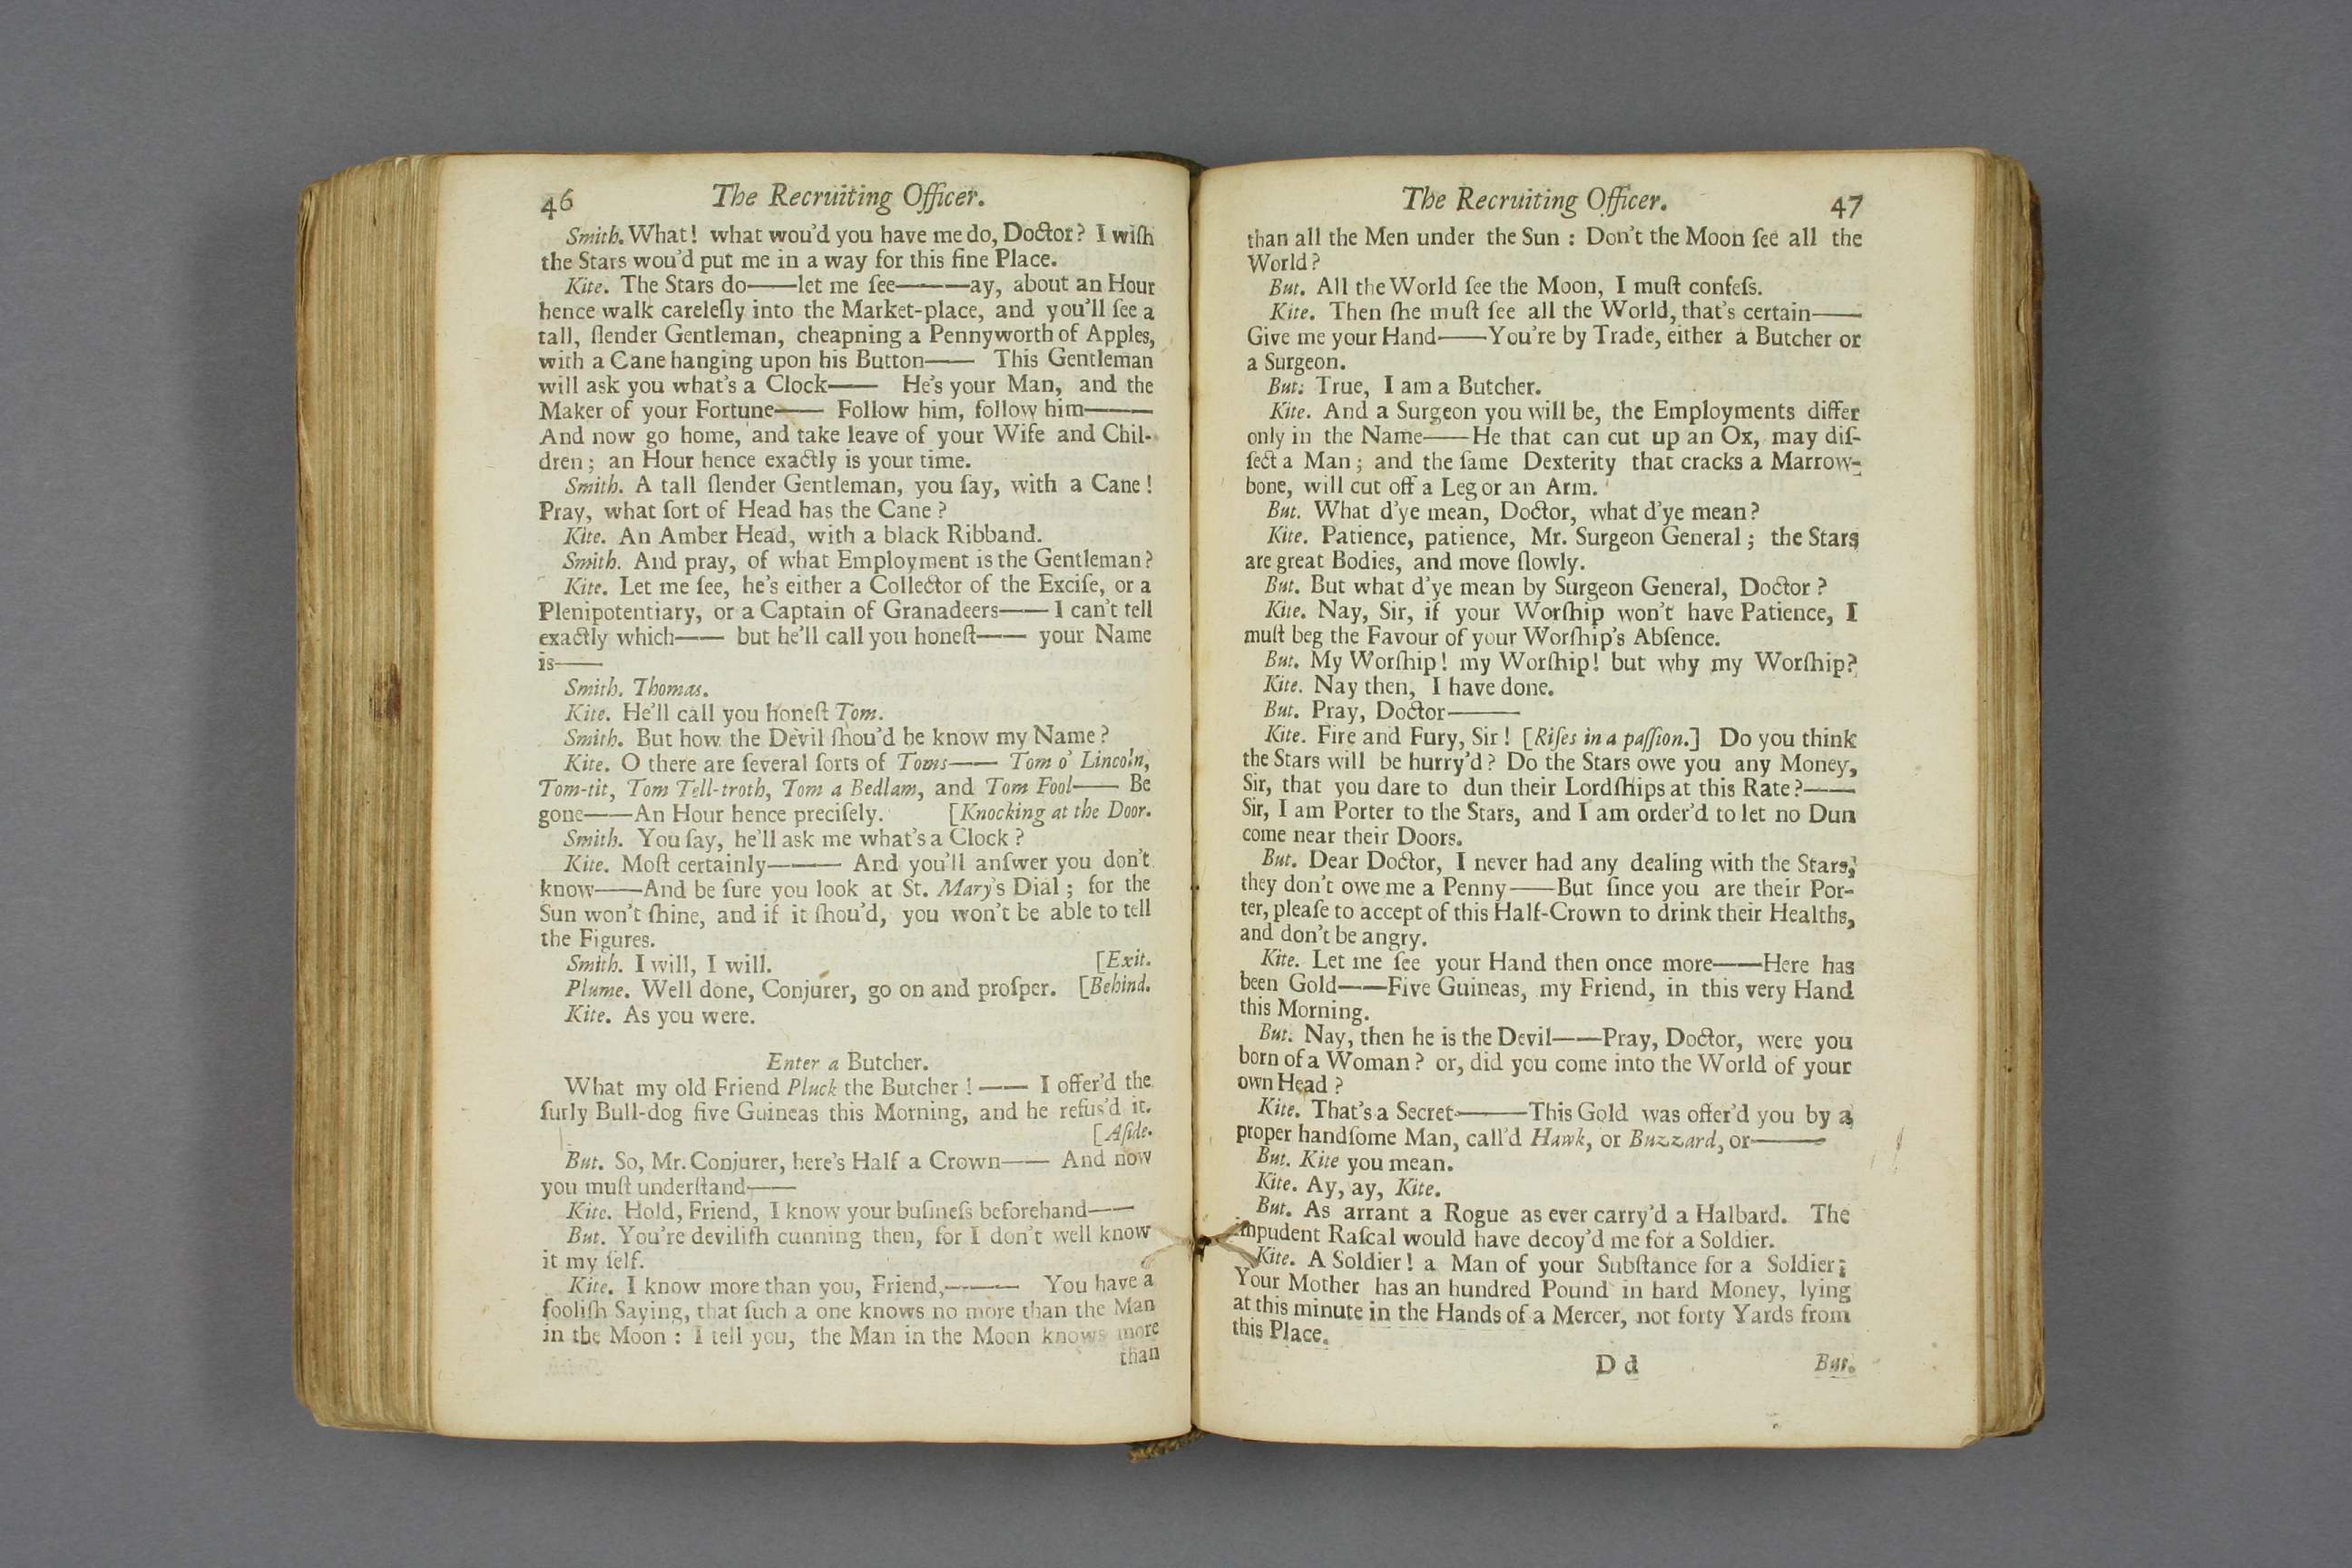 46 The Recruiting Officer.
Smith. What! what wou'd you have me do, Doctor? I wiſh
the Stars wou'd put me in a way for this fine Place.
Kite. The Stars do——let me ſee———ay, about an Hour
hence walk careleſly into the Market-place, and you'll ſee a
tall, ſlender Gentleman, cheapning a Pennyworth of Apples,
with a Cane hanging upon his Button—— This Gentleman
will ask you what's a Clock—— He's your Man, and the
Maker of your Fortune—— Follow him, follow him———
And now go home, and take leave of your Wife and Chil-
dren; an Hour hence exactly is your time.
Smith. A tall ſlender Gentleman, you ſay, with a Cane!
Pray, what ſort of Head has the Cane?
Kite. An Amber Head, with a black Ribband.
Smith. And pray, of what Employment is the Gentleman?
Kite. Let me ſee, he's either a Collector of the Exciſe, or a
Plenipotentiary, or a Captain of Granadeers—— I can't tell
exactly which—— but he'll call you honeſt—— your Name
is——
Smith. Thomas.
Kite. He'll call you honeſt Tom.
Smith. But how the Devil ſhou'd he know my Name?
Kite. O there are ſeveral ſorts of Toms—— Tom o' Lincoln,
Tom-tit, Tom Tell-troth, Tom a Bedlam, and Tom Fool—— Be
gone——An Hour hence preciſely. [Knocking at the Door.
Smith. You ſay, he'll ask me what's a Clock?
Kite. Moſt certainly——— And you'll anſwer you don't
know——And be ſure you look at St. Mary's Dial; for the
Sun won't ſhine, and if it ſhou'd, you won't be able to tell
the Figures.
Smith. I will, I will. [Exit.
Plume. Well done, Conjurer, go on and proſper. [Behind.
Kite. As you were.
Enter a Butcher.
What my old Friend Pluck the Butcher!—— I offer'd the
ſurly Bull-dog five Guineas this Morning, and he refus'd it.
[Aſide.
But. So, Mr. Conjurer, here's Half a Crown—— And now
you muſt underſtand——
Kite. Hold, Friend, I know your buſineſs beforehand——
But. You're deviliſh cunning then, for I don't well know
it my ſelf.
Kite. I know more than you, Friend,——— You have a
fooliſh Saying, that ſuch a one knows no more than the Man
in the Moon: I tell you, the Man in the Moon knows more
than
The Recruiting Officer. 47
than all the Men under the Sun: Don't the Moon ſee all the
World?
But. All the World ſee the Moon, I muſt confeſs.
Kite. Then ſhe muſt ſee all the World, that's certain——
Give me your Hand——You're by Trade, either a Butcher or
a Surgeon.
But: True, I am a Butcher.
Kite. And a Surgeon you will be, the Employments differ
only in the Name——He that can cut up an Ox, may diſ-
ſect a Man; and the ſame Dexterity that cracks a Marrow-
bone, will cut off a Leg or an Arm.
But. What d'ye mean, Doctor, what d'ye mean?
Kite. Patience, patience, Mr. Surgeon General; the Stars
are great Bodies, and move ſlowly.
But. But what d'ye mean by Surgeon General, Doctor?
Kite. Nay, Sir, if your Worſhip won't have Patience, I
muſt beg the Favour of your Worſhip's Abſence.
But. My Worſhip! my Worſhip! but why my Worſhip?
Kite. Nay then, I have done.
But. Pray, Doctor———
Kite. Fire and Fury, Sir! [Riſes in a paſſion.] Do you think
the Stars will be hurry'd? Do the Stars owe you any Money,
Sir, that you dare to dun their Lordſhips at this Rate?——
Sir, I am Porter to the Stars, and I am order'd to let no Dun
come near their Doors.
But. Dear Doctor, I never had any dealing with the Stars,
they don't owe me a Penny——But ſince you are their Por-
ter, pleaſe to accept of this Half-Crown to drink their Healths,
and don't be angry.
Kite. Let me ſee your Hand then once more——Here has
been Gold——Five Guineas, my Friend, in this very Hand
this Morning.
But. Nay, then he is the Devil——Pray, Doctor, were you
born of a Woman? or, did you come into the World of your
own Head?
Kite. That's a Secret———This Gold was offer'd you by a
proper handſome Man, call'd Hawk, or Buzzard, or———
But. Kite you mean.
Kite. Ay, ay, Kite.
But. As arrant a Rogue as ever carry'd a Halbard. The
impudent Raſcal would have decoy'd me for a Soldier.
Kite. A Soldier! a Man of your Subſtance for a Soldier;
Your Mother has an hundred Pound in hard Money, lying
at this minute in the Hands of a Mercer, not forty Yards from
this Place.
D d But.